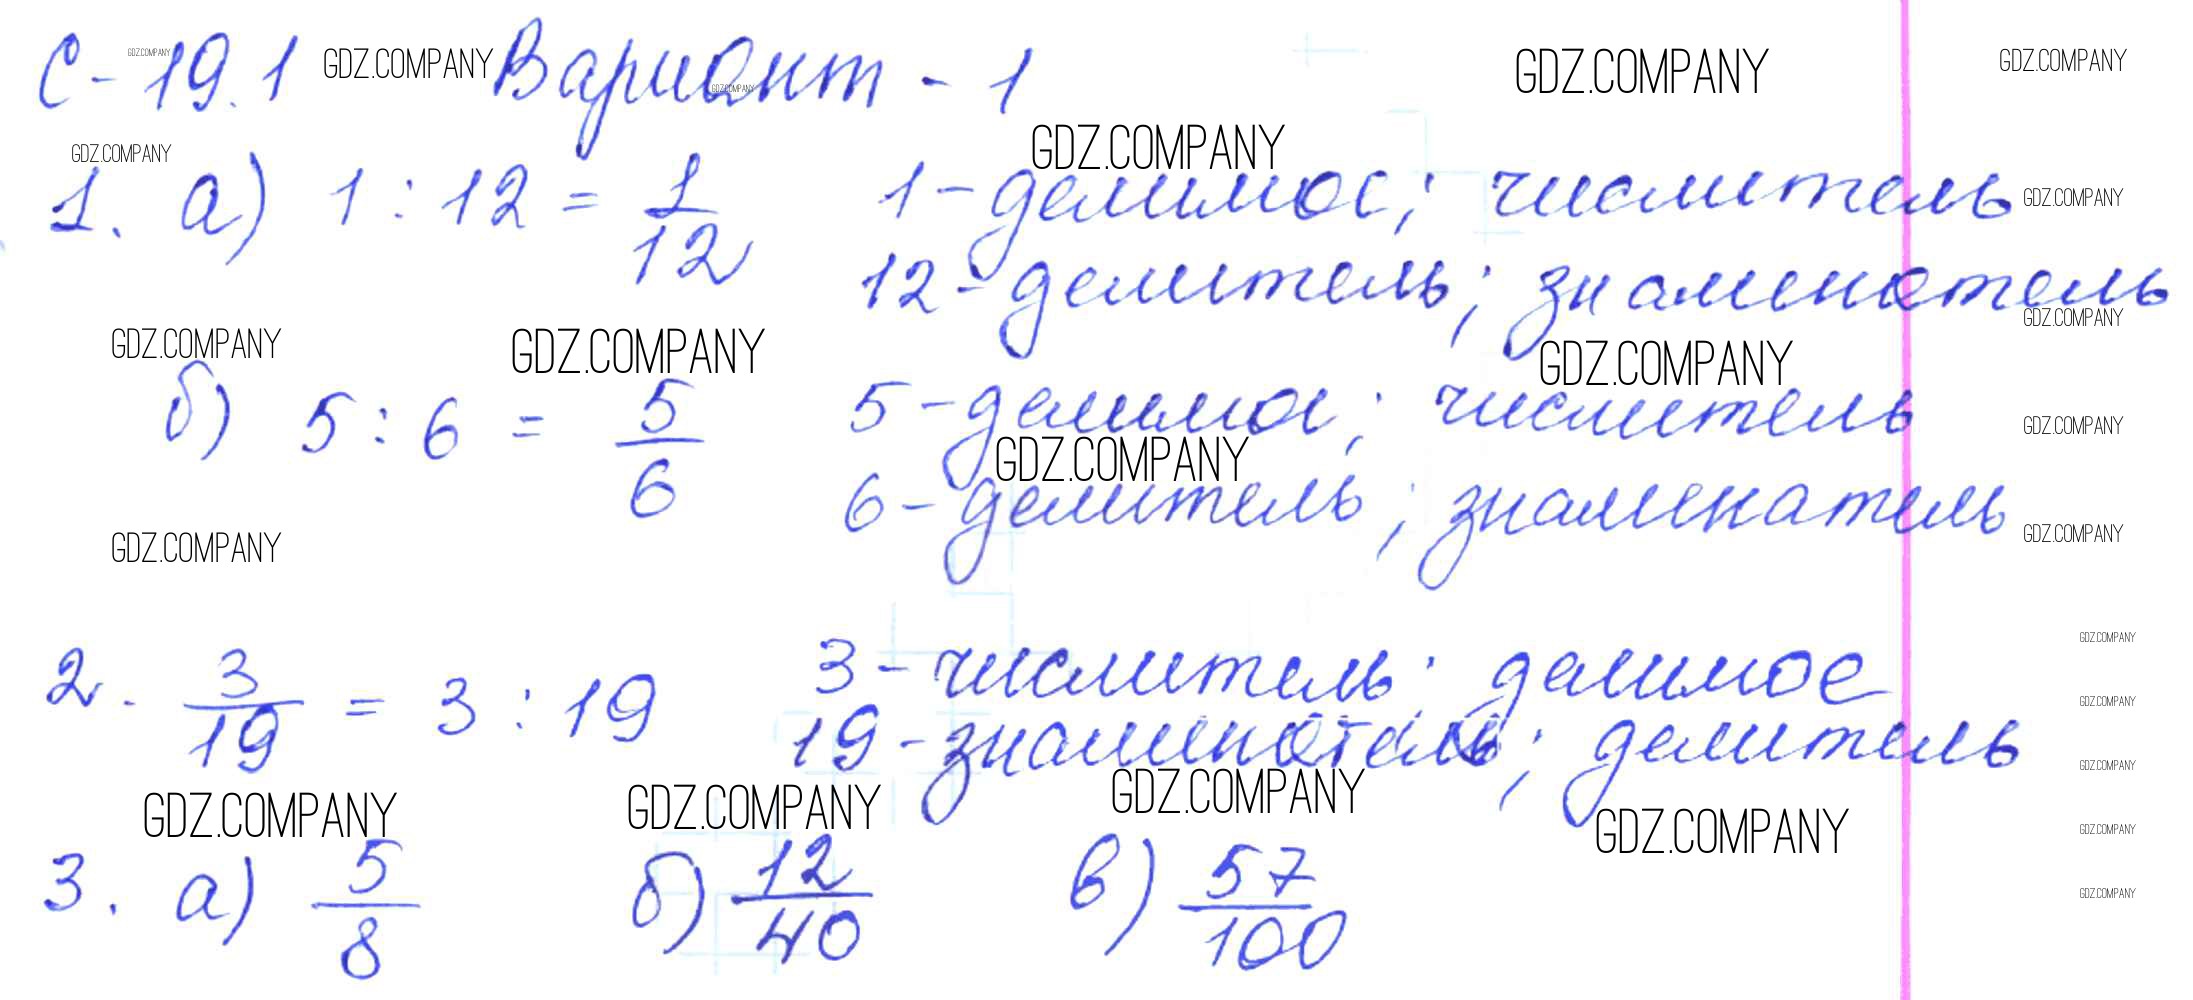 С-19.1 GDZ.COMPANY Вариант - 1 GDZ.COMPANY GDZ.COMPANY
GDZ.COMPANY GDZ.COMPANY
GDZ.COMPANY GDZ.COMPANY
1. а) 1 : 12 = 1/12 1 - делимое; числитель GDZ.COMPANY
12 - делитель; знаменатель
GDZ.COMPANY
GDZ.COMPANY GDZ.COMPANY GDZ.COMPANY
б) 5 : 6 = 5/6 5 - делимое; числитель GDZ.COMPANY
GDZ.COMPANY
6 - делитель; знаменатель
GDZ.COMPANY GDZ.COMPANY
GDZ.COMPANY
2. 3/19 = 3 : 19 3 - числитель; делимое
GDZ.COMPANY
19 - знаменатель; делитель
GDZ.COMPANY
GDZ.COMPANY GDZ.COMPANY GDZ.COMPANY GDZ.COMPANY GDZ.COMPANY
3. а) 5/8 б) 12/40 в) 57/100
GDZ.COMPANY